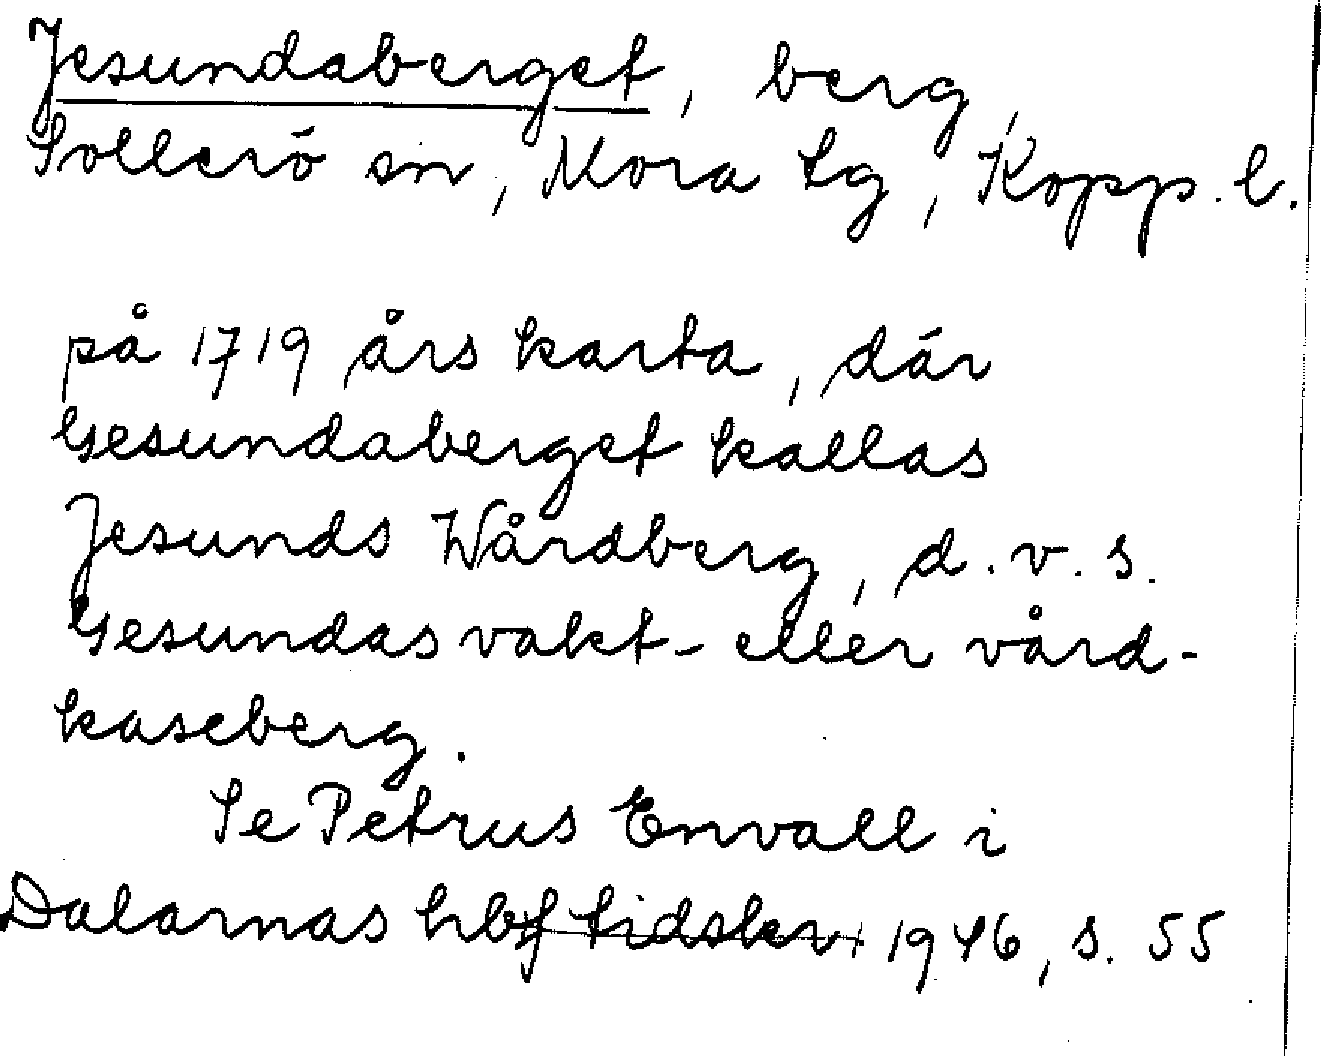 Jesundaberget, berg,
Sollerö sn, Mora tg, Kopp. l.
på 1719 års karta, där
Gesundaberget kallas
Jesunds Wårdberg, d. v. s.
Gesundas vakt- eller vård-
kaseberg.
Se Petrus Envall i
Dalarnas hbf tidskr. 1946, s. 55